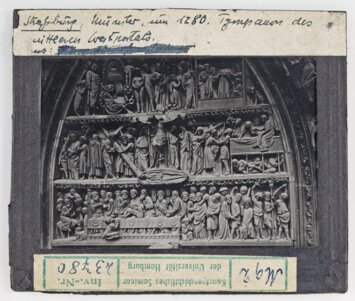 Straßburg, Münster, um 1280. Tympanon des
mittleren Westportals.
Kunstgeschichtliches Seminar
der Universität Hamburg
Inv.-Nr.
23780